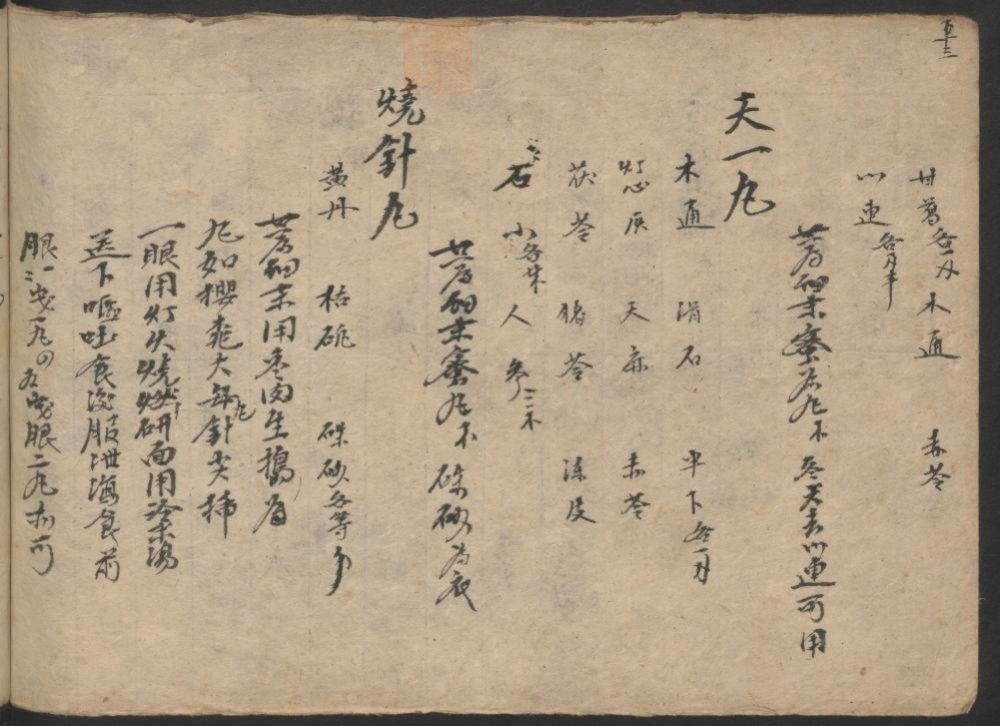 五十三
甘草各一刃 木通 赤苓
川連 各刃半
共為細末蜜為丸不 冬天去川連可用
天一丸
木通 滑石 半下各一刃
灯心灰 天麻 赤苓
茯苓 猪苓 陳皮
石 人參三木
共為細末蜜丸不 硃砂為衣
燒針丸
黃丹 枯矾 硃砂各等分
共為細末用棗肉生搗為
丸如櫻桃大每丸針尖挿
一眼用灯火燒燃研面用冷米湯
送下嘔吐食後服泄瀉食前
服一歲一丸四五歲服二丸亦可